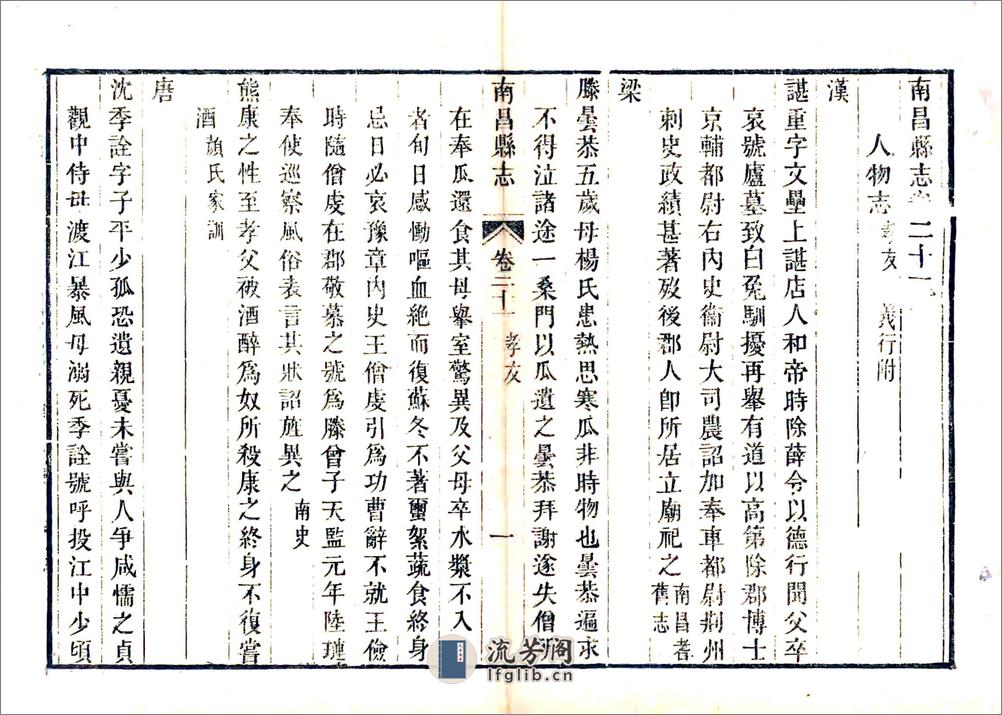 南昌縣志卷二十一
人物志 孝友 義行附
漢
諶重字文壘上諶店人和帝時除薛令以德行聞父卒
哀號廬墓致白兔馴擾再舉有道以高第除郡博士
京輔都尉右內史衞尉大司農詔加奉車都尉荆州
刺史政績甚著歿後郡人卽所居立廟祀之 南昌耆
舊志
梁
滕曇恭五歲母楊氏患熱思寒瓜非時物也曇恭遍求
不得泣諸途一桑門以瓜遺之曇恭拜謝遂失僧所
南昌縣志 卷二十一 孝友 一
在奉瓜還食其母舉室驚異及父母卒水漿不入口
者旬日感慟嘔血絶而復蘇冬不著璽絮蔬食終身
忌日必哀豫章內史王僧虔引爲功曹辭不就王儉
時隨僧虔在郡敬慕之號爲滕曾子天監元年陸璉
奉使巡察風俗表言其狀詔旌異之 南史
熊康之性至孝父被酒醉爲奴所殺康之終身不復嘗
酒 顏氏家訓
唐
沈季詮字子平少孤恐遺親憂未嘗與人爭咸懦之貞
觀中侍母渡江暴風母溺死季詮號呼投江中少頃
流芳阁
lfglib.cn